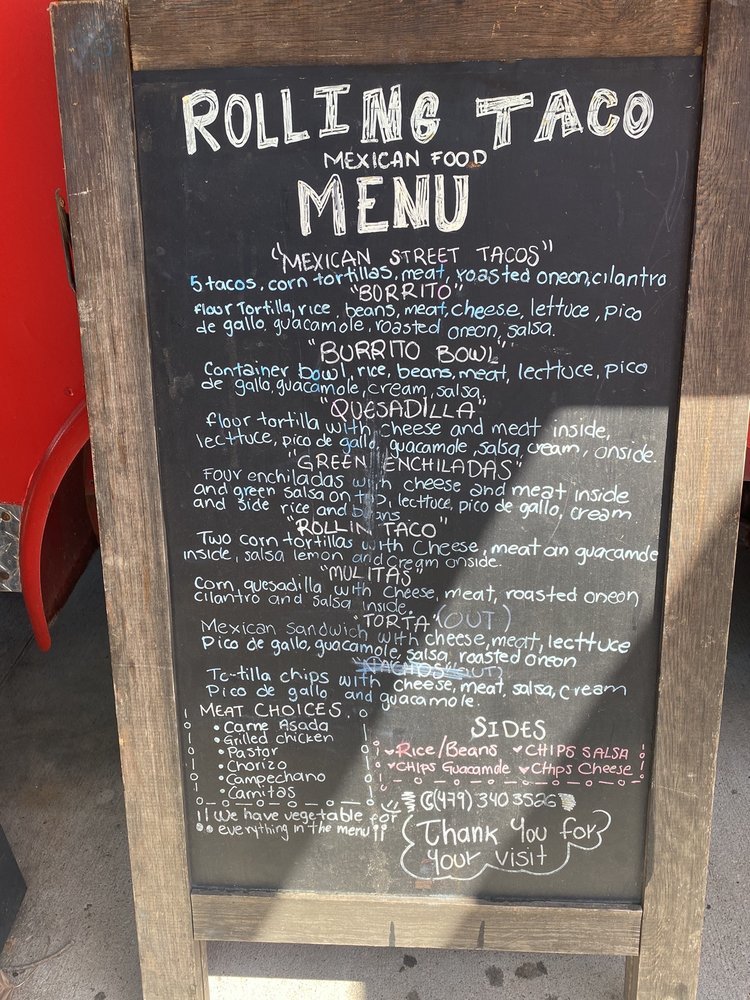 ROLLING TACO
MEXICAN FOOD
MENU
"MEXICAN STREET TACOS"
5 tacos, corn tortillas, meat, roasted oneon, cilantro
"BORRITO"
flour Tortilla, rice, beans, meat, cheese, lettuce, pico
de gallo, guacamole, roasted oneon, salsa.
"BURRITO BOWL"
Container bowl, rice, beans, meat, lecttuce, pico
de gallo, guacamole, cream, salsa,
"QUESADILLA"
flour tortilla with cheese and meat inside,
lecttuce, pico de gallo, guacamole, salsa, cream, onside.
"GREEN ENCHILADAS"
Four enchiladas with cheese and meat inside
and green salsa on top, lecttuce, pico de gallo, cream
and side rice and beans
"ROLLIN TACO"
Two corn tortillas with Cheese, meat an guacamole
inside, salsa lemon and cream onside.
"MULITAS"
Corn, quesadilla with cheese, meat, roasted oneon
cilantro and salsa inside.
"TORTA" (OUT)
Mexican sandwich with cheese, meat, lecttuce
Pico de gallo, guacamole, salsa, roasted oneon
OUT
Tortilla chips with cheese, meat, salsa, cream
Pico de gallo and guacamole.
MEAT CHOICES.
• Carne Asada
• Grilled chicken
• Pastor
• Chorizo
• Campechano
• Carnitas
!! We have vegetable for
everything in the menu !!
SIDES
♥Rice/Beans ♥CHIPS SALSA
♥CHIPS Guacamole ♥CHIPS Cheese
(479) 340 3526
Thank you for
your visit